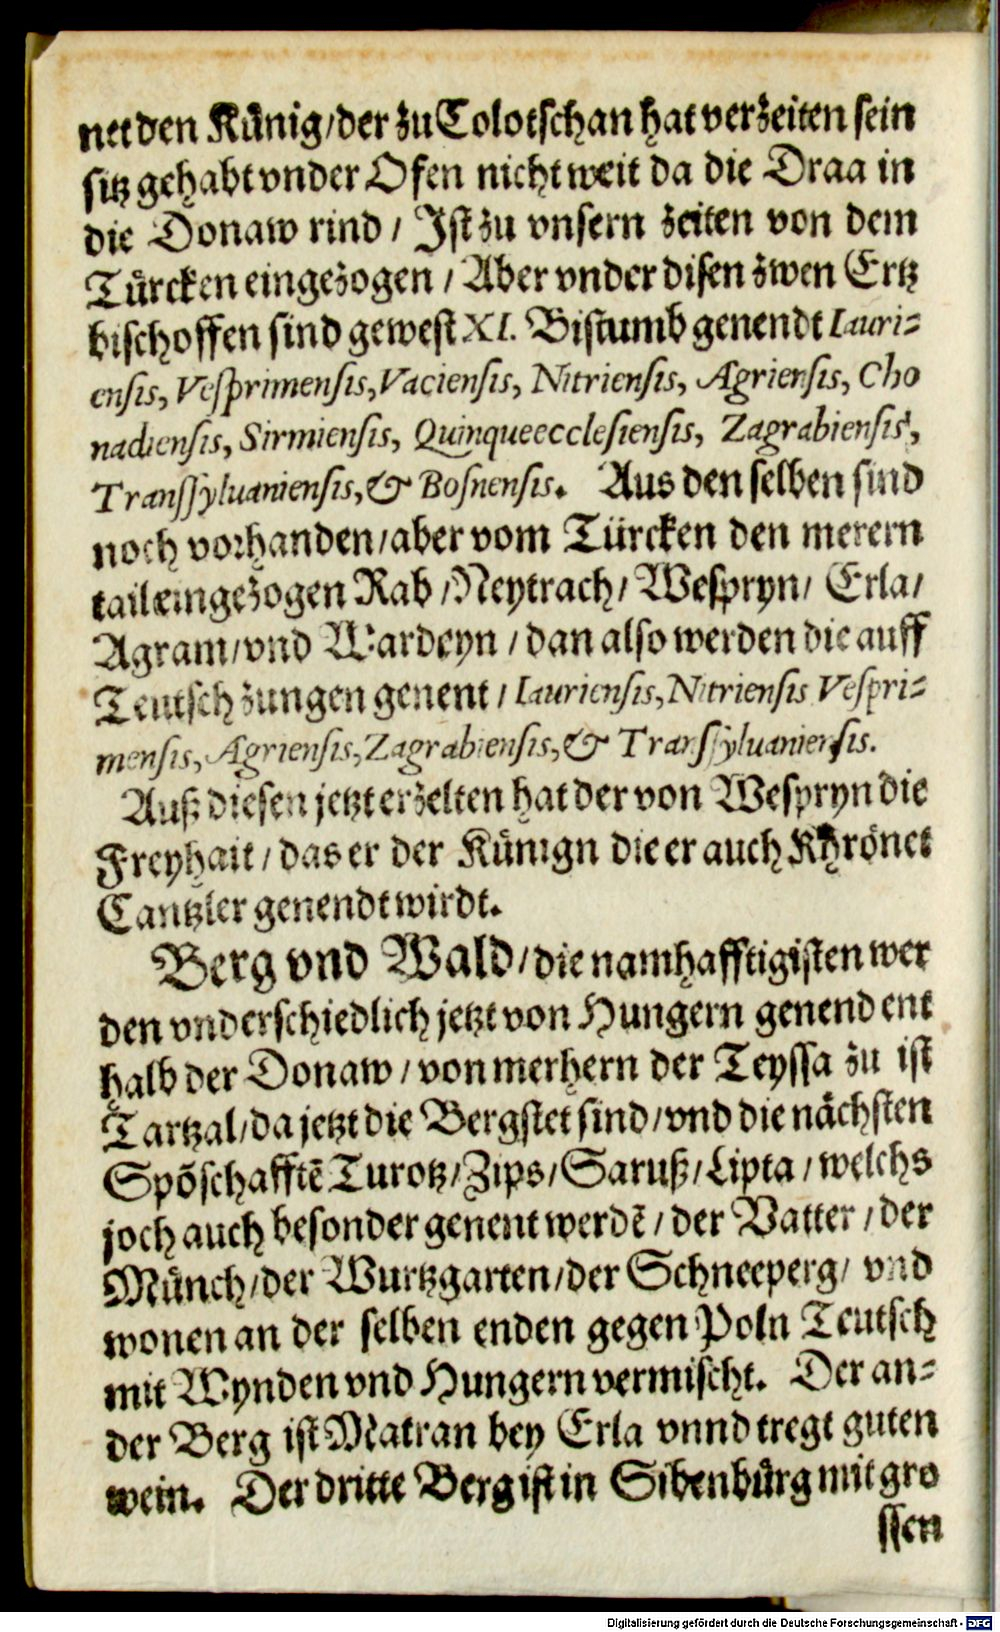 net den Künig/der zu Colotschan hat verzeiten sein
sitz gehabt vnder Ofen nicht weit da die Draa in
die Donaw rind / Ist zu vnsern zeiten von dem
Türcken eingezogen / Aber vnder disen zwen Ertz
bischoffen sind gewest XI. Bistumb genendt Iauri-
ensis, Vesprimensis, Vaciensis, Nitriensis, Agriensis, Cho
nadiensis, Sirmiensis, Quinqueecclesiensis, Zagrabiensis,
Transsyluaniensis, & Bosnensis. Aus den selben sind
noch vorhanden/aber vom Türcken den merern
tail eingezogen Rab /Neytrach/ Wespryn/ Erla/
Agram/vnd Wardeyn /dan also werden die auff
Teutsch zungen genent / Iauriensis, Nitriensis Vespri-
mensis, Agriensis, Zagrabiensis, & Transsyluaniensis.
Auß diesen jetzt erzelten hat der von Wespryn die
Freyhait / das er der Künign die er auch Khrönet
Cantzler genendt wirdt.
Berg vnd Wald/die namhafftigisten wer
den vnderschiedlich jetzt von Hungern genend ent
halb der Donaw / von merhern der Teyssa zu ist
Tartzal/da jetzt die Bergstet sind/vnd die nächsten
Spõschafftẽ Turotz/Zips/Saruß/Lipta / welchs
joch auch besonder genent werdẽ / der Vatter / der
Münch/der Wurtzgarten/der Schneeperg/ vnd
wonen an der selben enden gegen Poln Teutsch
mit Wynden vnd Hungern vermischt. Der an-
der Berg ist Matran bey Erla vnnd tregt guten
wein. Der dritte Berg ist in Sibenbürg mit gro
ssen
Digitalisierung gefördert durch die Deutsche Forschungsgemeinschaft - DFG